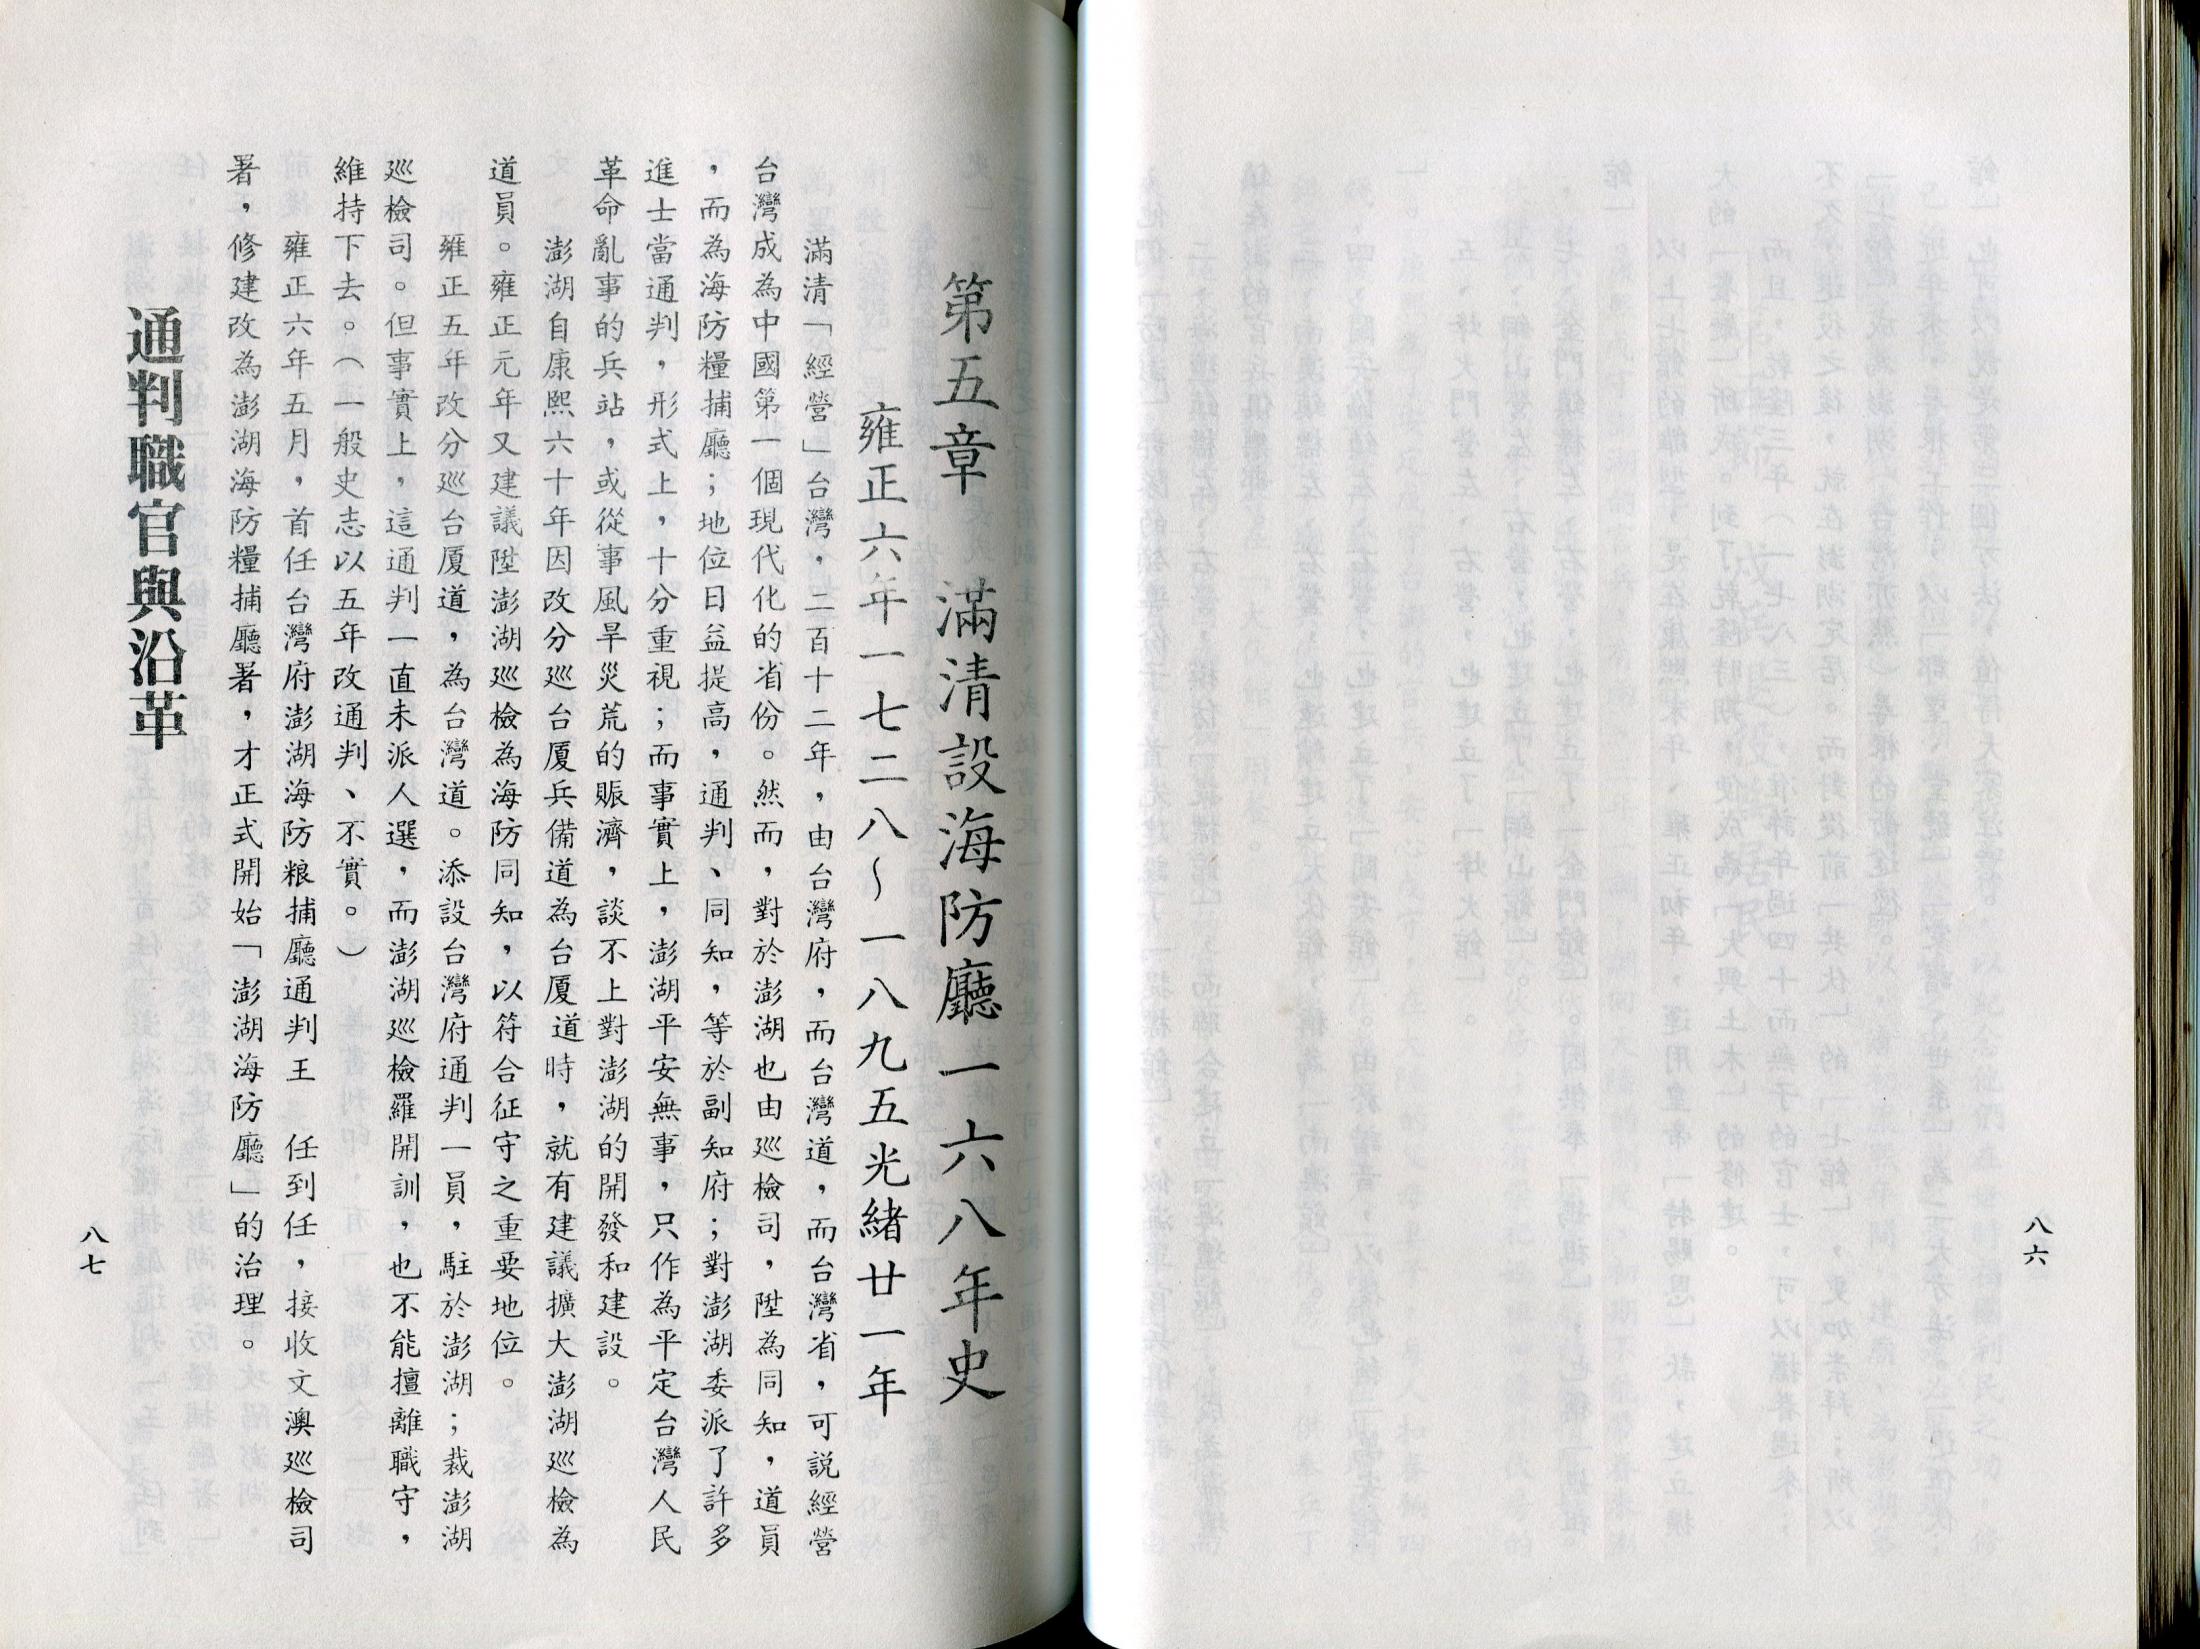 八六
第五章　滿清設海防廳一六八年史
雍正六年一七二八～一八九五光緒廿一年
滿清「經營」台灣，二百十二年，由台灣府，而台灣道，而台灣省，可説經營
台灣成為中國第一個現代化的省份。然而，對於澎湖也由巡檢司，陞為同知，道員
，而為海防糧捕廳；地位日益提高，通判、同知，等於副知府；對澎湖委派了許多
進士當通判，形式上，十分重視；而事實上，澎湖平安無事，只作為平定台灣人民
革命亂事的兵站，或從事風旱災荒的賑濟，談不上對澎湖的開發和建設。
澎湖自康熙六十年因改分巡台厦兵備道為台厦道時，就有建議擴大澎湖巡檢為
道員。雍正元年又建議陞澎湖巡檢為海防同知，以符合征守之重要地位。
雍正五年改分巡台厦道，為台灣道。添設台灣府通判一員，駐於澎湖；裁澎湖
巡檢司。但事實上，這通判一直未派人選，而澎湖巡檢羅開訓，也不能擅離職守，
維持下去。（一般史志以五年改通判、不實。）
雍正六年五月，首任台灣府澎湖海防粮捕廳通判王　任到任，接收文澳巡檢司
署，修建改為澎湖海防糧捕廳署，才正式開始「澎湖海防廳」的治理。
通判職官與沿革
八七